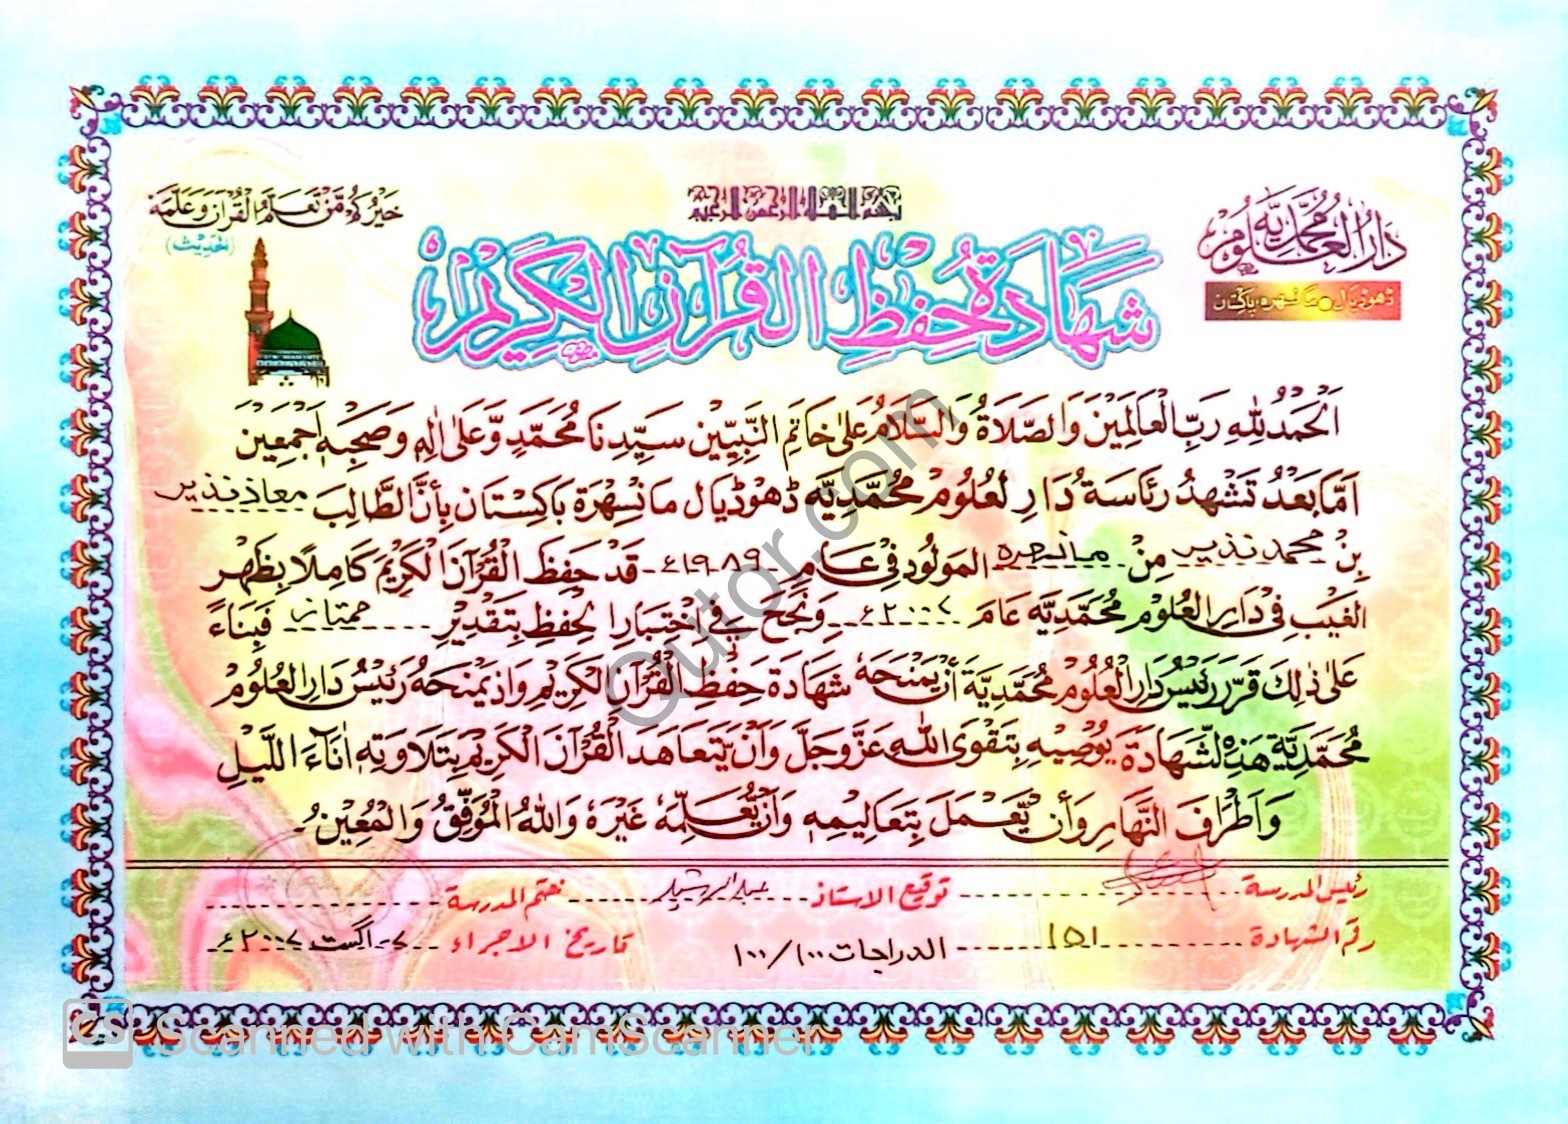 بسم الله الرحمن الرحيم
خَيْرُكُمْ مَنْ تَعَلَّمَ الْقُرْآنَ وَعَلَّمَهُ
(الحدیث)
دَارُ الْعُلُومِ مُحَمَّدِيَّه
ڈھوڈیال مانسہرہ پاکستان
شَهَادَةُ حِفْظِ الْقُرْآنِ الْكَرِيْمِ
اَلْحَمْدُ لِلّٰهِ رَبِّ الْعَالَمِيْنَ وَالصَّلَاةُ وَالسَّلَامُ عَلَى خَاتَمِ النَّبِيِّيْنَ سَيِّدِنَا مُحَمَّدٍ وَّعَلَى اٰلِهٖ وَصَحْبِهٖ اَجْمَعِيْنَ
اَمَّا بَعْدُ تَشْهَدُ رِئَاسَةُ دَارِ لْعُلُوْمِ مُحَمَّدِيَّه ڈھوڈیال مانسهرة باكستان بِأَنَّ الطَّالِبَ معاذ نذیر
بْنِ محمد نذیر مِنْ مانسهره المَوْلُوْد فِيْ عَامِ ۱۹۸۹ء قَدْ حَفِظَ الْقُرْآنَ الْكَرِيْمَ كَامِلًا بِظَهْرِ
الْغَيْبِ فِيْ دَارِ الْعُلُوْمِ مُحَمَّدِيَّه عَامَ ۲۰۰۷ء وَنَجَحَ فِيْ اخْتِبَارِ الْحِفْظِ بِتَقْدِيْرِ ممتاز فَبِنَاءً
عَلَى ذٰلِكَ قَرَّرَ رَئِيْسُ دَارِ الْعُلُوْمِ مُحَمَّدِيَّة أَنْ يَمْنَحَهُ شَهَادَةَ حِفْظِ الْقُرْآنِ الْكَرِيْمِ وَاذْ يَمْنَحُهُ رَئِيْسُ دَارِ الْعُلُوْمِ
مُحَمَّدِيَّة هٰذِهِ الشَّهَادَةَ يُوْصِيْهِ بِتَقْوَى اللّٰهِ عَزَّ وَجَلَّ وَأَنْ يَتَعَاهَدَ الْقُرْآنَ الْكَرِيْمَ بِتِلَاوَتِهٖ اٰنَآءَ اللَّيْلِ
وَاَطْرَافَ النَّهَارِ وَأَنْ يَّعْمَلَ بِتَعَالِيْمِهٖ وَأَنْ يُعَلِّمَهُ غَيْرَهُ وَاللّٰهُ الْمُوَفِّقُ وَالْمُعِيْنُ۔
رئيس المدرسة توقيع الاستاذ عبدالرشید ختم المدرسة
رقم الشهادة ۱۵۱ الدراجات ۱۰۰/۱۰۰ تاريخ الاجراء ۷- اگست ۲۰۰۷ء
Qutor.com
CS Scanned with CamScanner